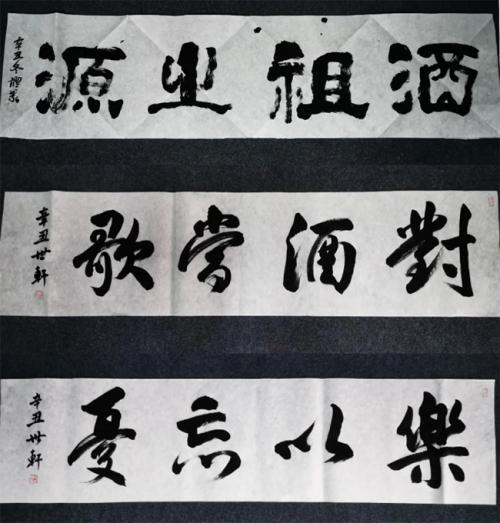 酒祖之源
辛丑冬
對酒當歌
辛丑世軒
樂以忘憂
辛丑世軒